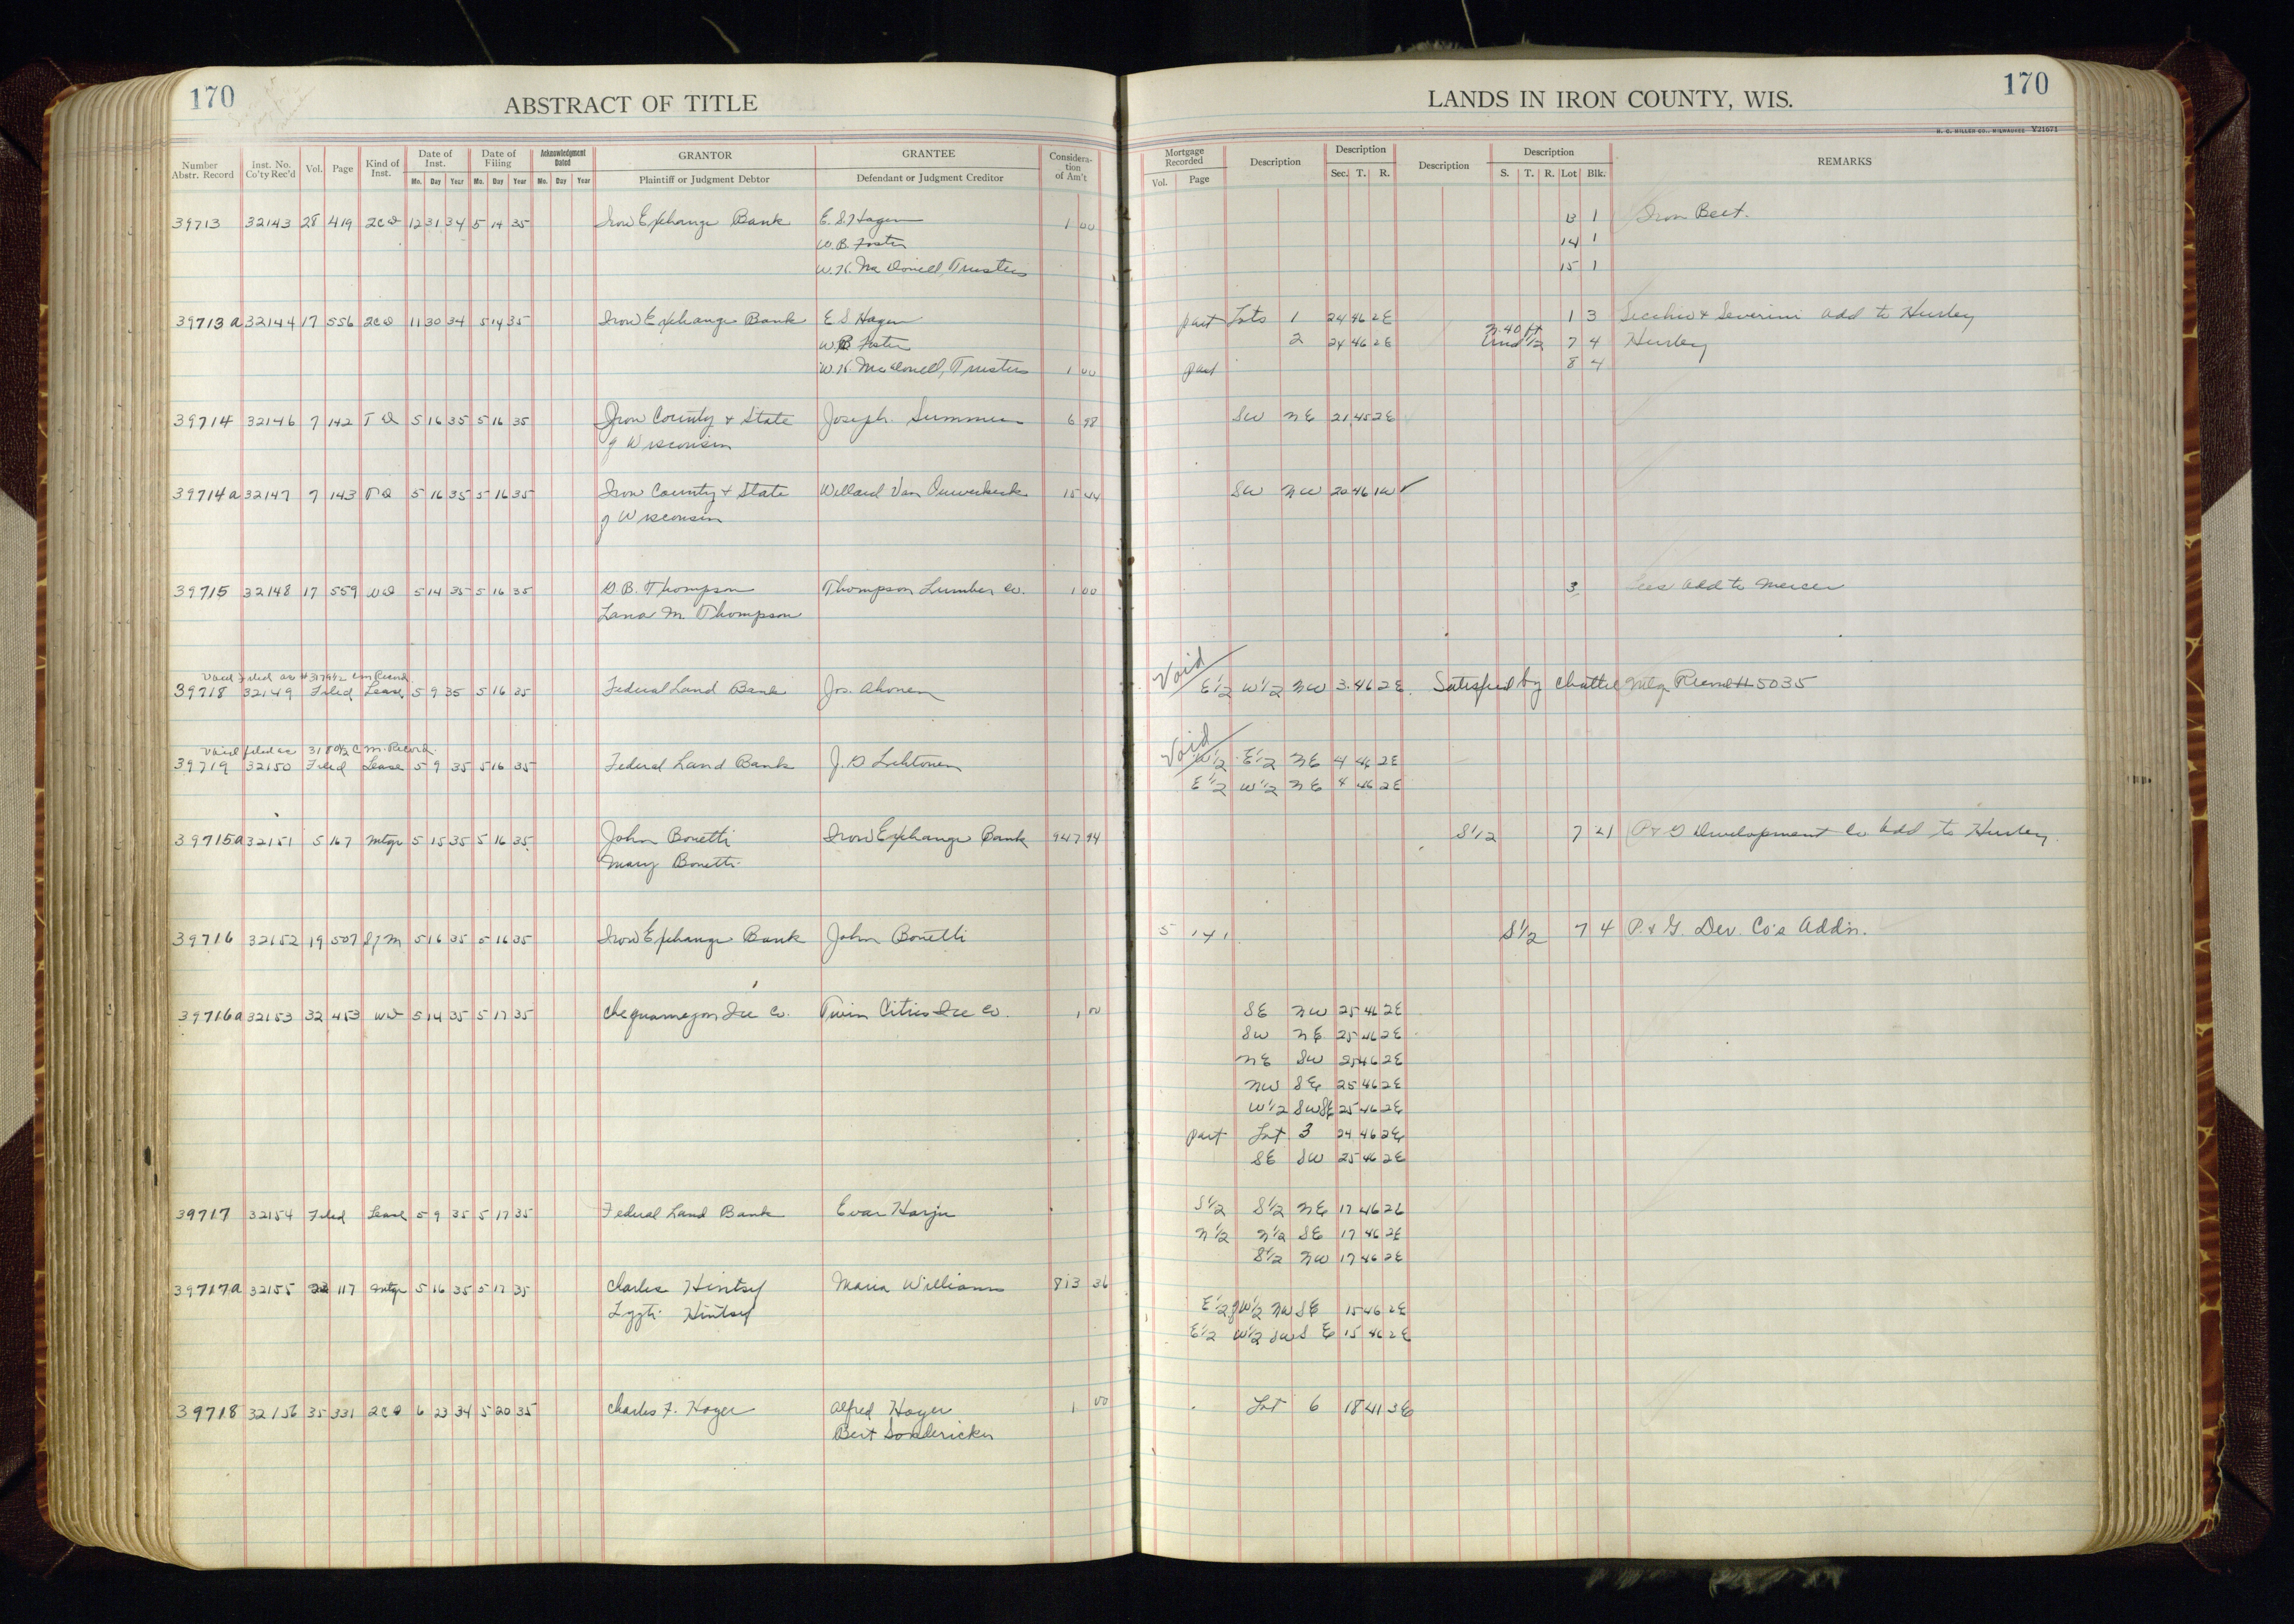 170
ABSTRACT OF TITLE
LANDS IN IRON COUNTY, WIS.
170
H. C. MILLER CO., MILWAUKEE Y21671
Number Abstr. Record | Inst. No. Co'ty Rec'd | Vol. | Page | Kind of Inst. | Date of Inst. Mo. Day Year | Date of Filing Mo. Day Year | Acknowledgment Dated Mo. Day Year | GRANTOR Plaintiff or Judgment Debtor | GRANTEE Defendant or Judgment Creditor | Consideration of Am't | Mortgage Recorded Vol. Page | Description | Description Sec. T. R. | Description | Description S. T. R. Lot Blk. | REMARKS
39713 32143 28 419 2CD 12 31 34 5 14 35 Iron Exchange Bank E. S. Hagen 1 00 13 1 Iron Belt.
W. B. Foster 14 1
W. K. MacDonell, Trustees 15 1
39713a 32144 17 556 2CD 11 30 34 5 14 35 Iron Exchange Bank E S Hagen part Lots 1 24 46 2E 1 3 Secchio & Severini Add to Hurley
W B Foster 2 24 46 2E N. 40 ft Und 1/2 7 4 Hurley
W. K. MacDonell, Trustees 1 00 part 8 4
39714 32146 7 142 T D 5 16 35 5 16 35 Iron County & State Joseph Summer 6 98 SW NE 21 45 2E
of Wisconsin
39714a 32147 7 143 T D 5 16 35 5 16 35 Iron County & State Willard Van Ouwerkerk 15 44 SW NW 20 46 1W ✓
of Wisconsin
39715 32148 17 559 WD 5 14 35 5 16 35 G. B. Thompson Thompson Lumber Co. 1 00 3 Add to Mercer
Lana M Thompson
Void Filed as #3179 1/2 C M Record
39718 32149 Filed Lease 5 9 35 5 16 35 Federal Land Bank Jos. Ahonen Void E1/2 W1/2 NW 3 46 2E Satisfied by Chattel Mtg Record # 5035
Void filed as 3180 1/2 C M. Record
39719 32150 Filed Lease 5 9 35 5 16 35 Federal Land Bank J. G Lehtonen Void W1/2 E1/2 NE 4 46 2E
E1/2 W1/2 NE 4 46 2E
39715a 32151 5 167 Mtge 5 15 35 5 16 35 John Bonetti Iron Exchange Bank 947 94 S1/2 7 21 P & G Development Co Add to Hurley
Mary Bonetti
39716 32152 19 507 Sf M 5 16 35 5 16 35 Iron Exchange Bank John Bonetti 5 141 S1/2 7 4 P. & G. Dev. Co's Addn.
39716a 32153 32 453 WD 5 14 35 5 17 35 Chequamegon Ice Co. Twin Cities Ice Co. 1 00 SE NW 25 46 2E
SW NE 25 46 2E
NE SW 25 46 2E
NW SE 25 46 2E
W1/2 SW SE 25 46 2E
part Lot 3 24 46 2E
SE SW 25 46 2E
39717 32154 Filed Lease 5 9 35 5 17 35 Federal Land Bank Evar Harju S1/2 S1/2 NE 17 46 2E
N1/2 N1/2 SE 17 46 2E
S1/2 NW 17 46 2E
39717a 32155 117 Mtge 5 16 35 5 17 35 Charles Hintsy Maria Williams 813 36
Hintsy E1/2 of W1/2 NW SE 15 46 2E
E1/2 W1/2 SW SE 15 46 2E
39718 32156 35 331 2CD 6 23 34 5 20 35 Charles F. Hoyer Alfred Hoyer 1 00 Lot 6 18 41 3E
Bert Sondericker